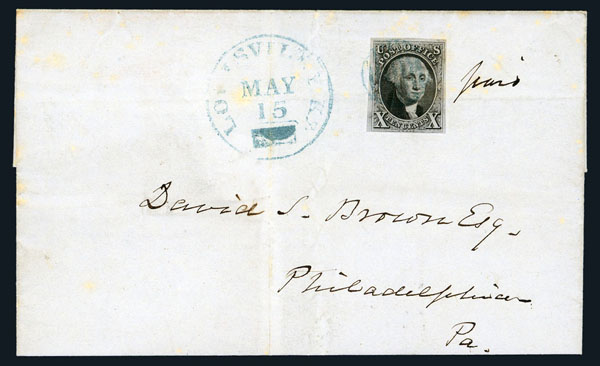 LOUISVILLE KY.
MAY
15
U S
POST OFFICE
X TEN CENTS X
paid
David S. Brown Esq.
Philadelphia
Pa.